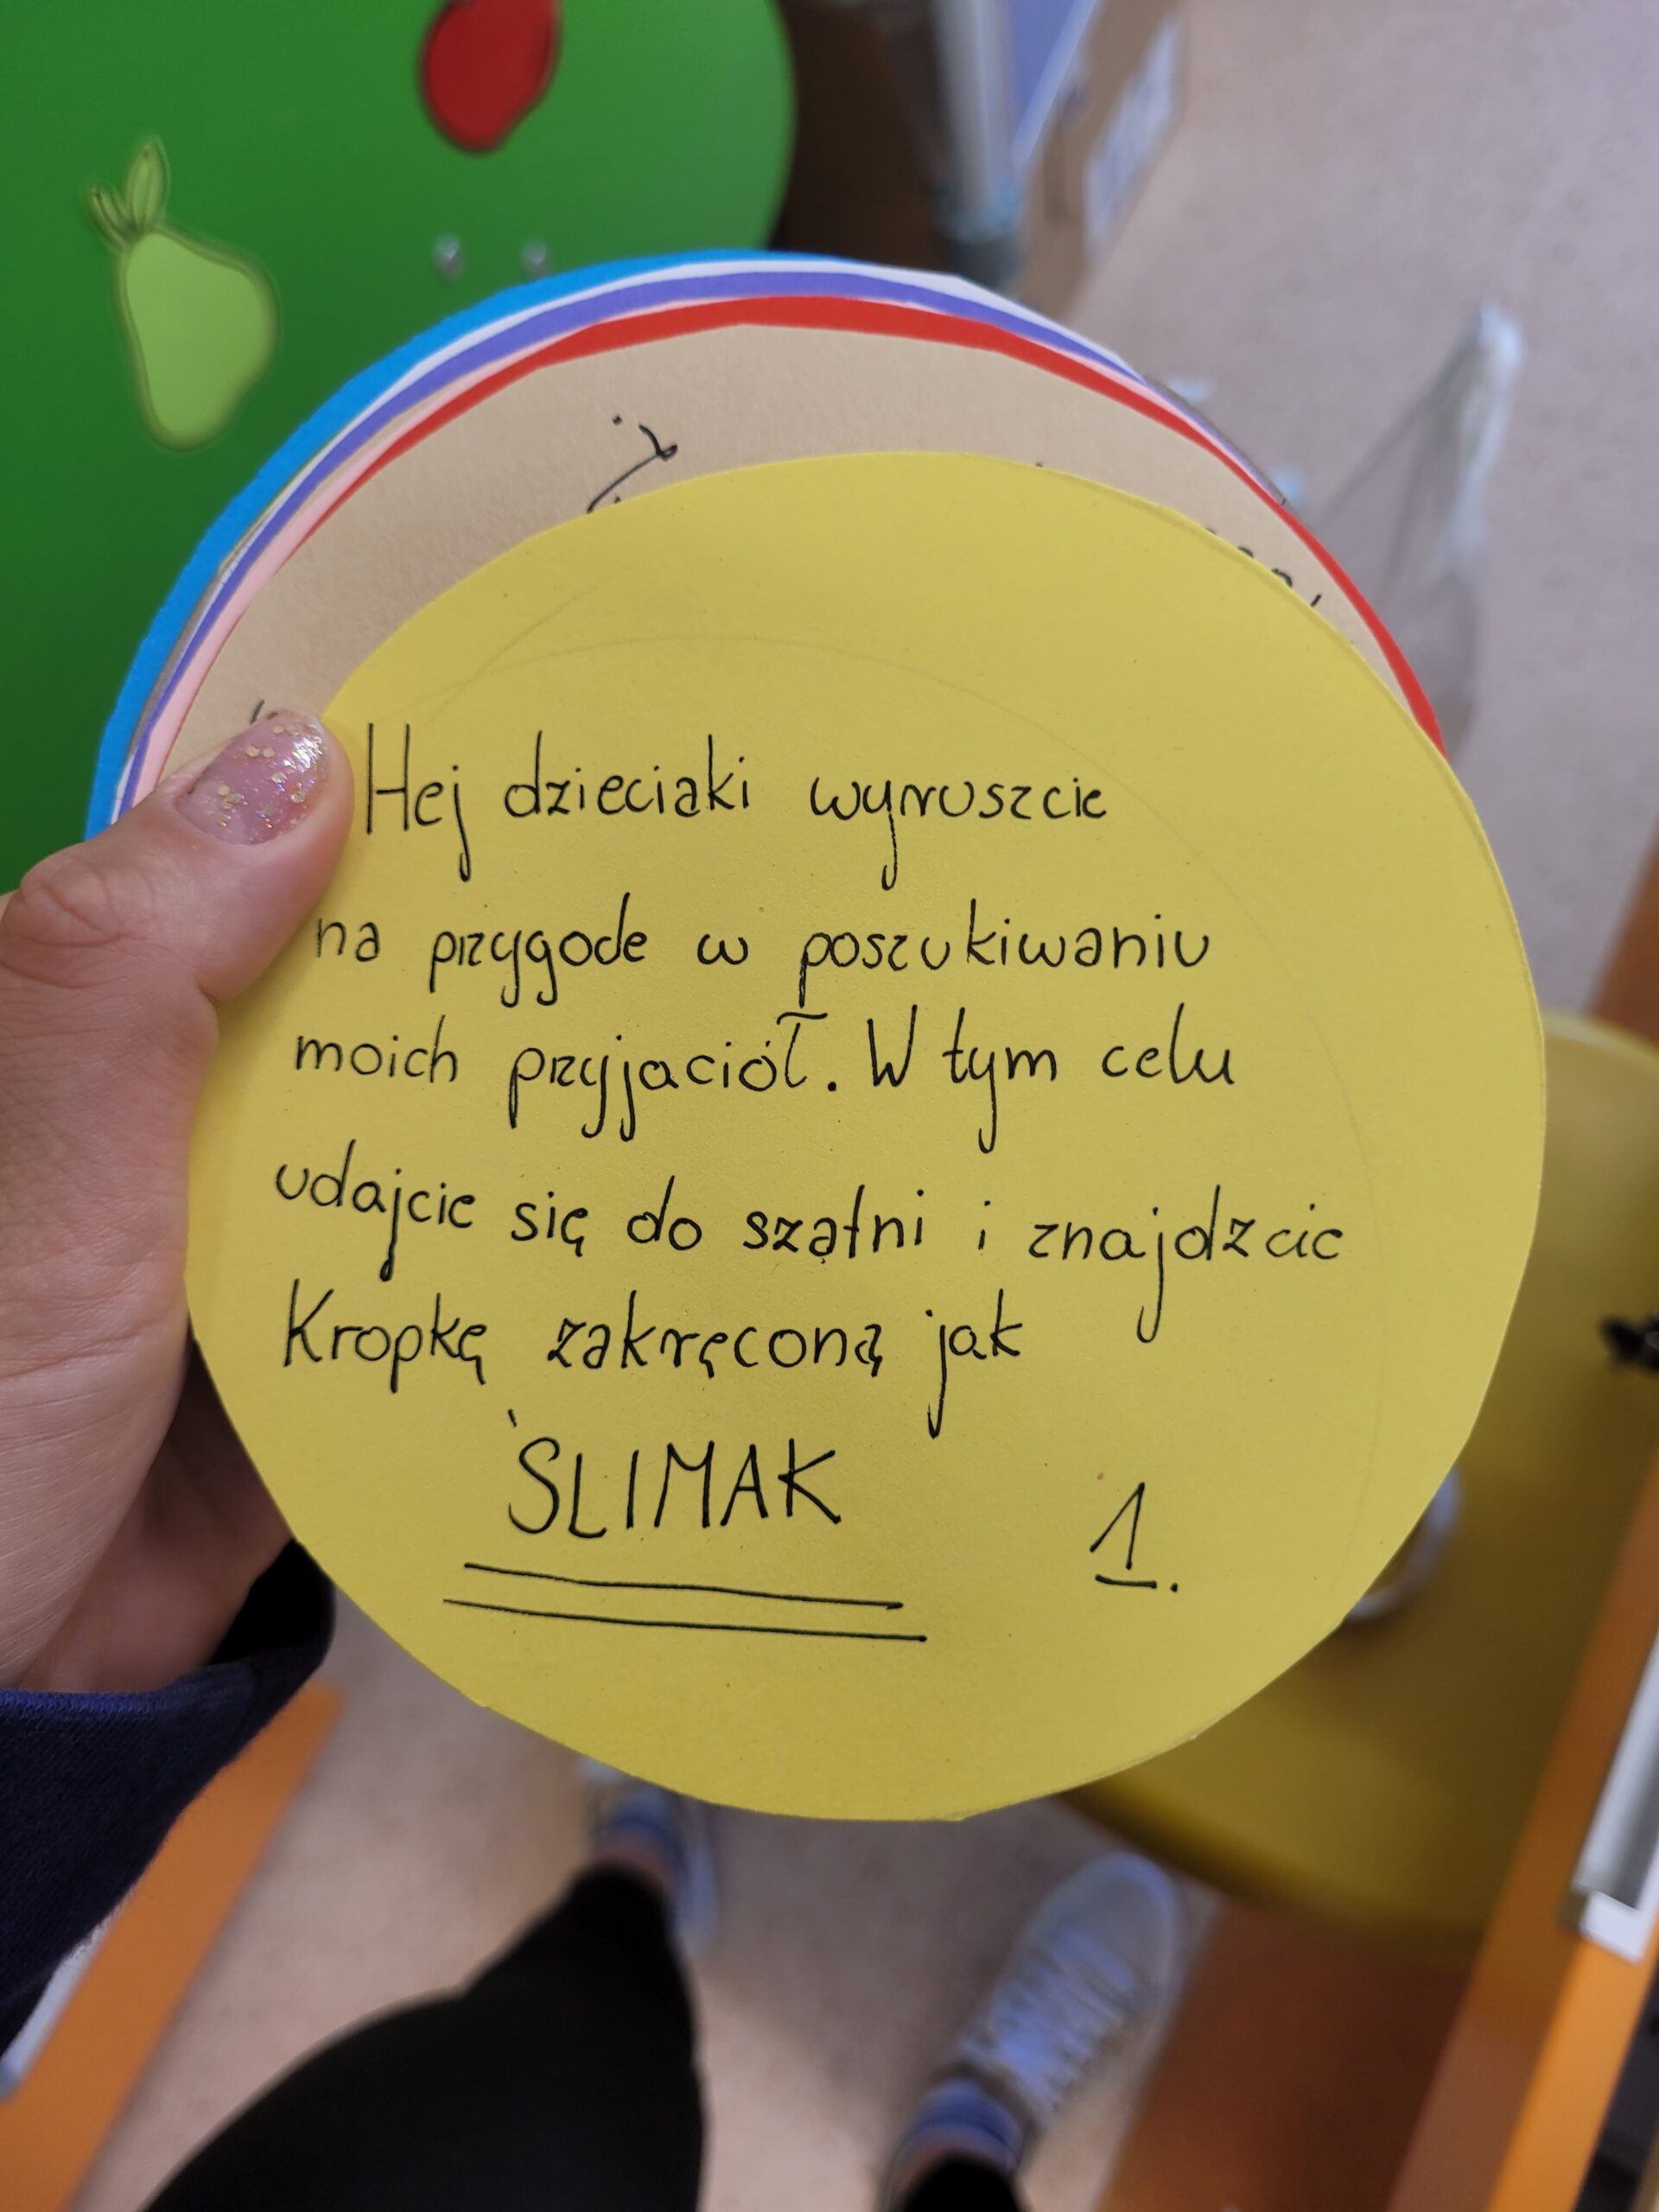 Hej dzieciaki wyruszcie
na przygode w poszukiwaniu
moich przyjaciół. W tym celu
udajcie się do szatni i znajdzcie
Kropkę zakręconą jak
ŚLIMAK
1.